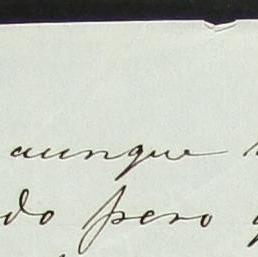 aunque
do pero